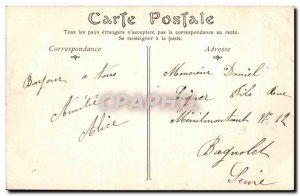 Carte Postale
Tous les pays étrangers n'acceptent pas la correspondance au recto.
Se renseigner à la poste.
Correspondance
Adresse
Bonjour a tous
Amitié
Alice
Monsieur Daniel
Fils Rue
Ménilmontant N° 12
Bagnolet
Seine